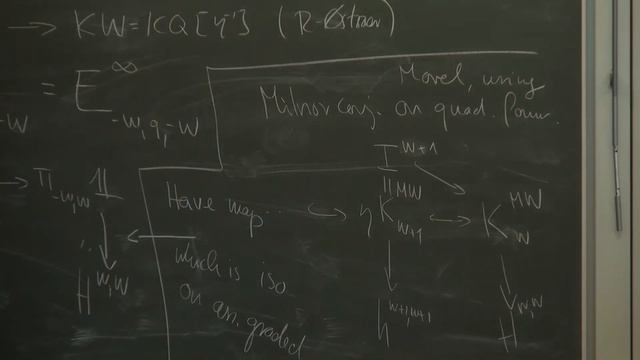 → KW = KQ[η⁻¹] (R-Østvær)
= E^∞_{-w,q,-w}
-w
Morel, using
Milnor conj. on quad. forms.
I^{w+1}
→ π_{-w,w} 𝟙
Have map .. ↪ η K^{MW}_{w+1} ↪ K^{MW}_w
which is iso
on ass. graded
H^{w,w} h^{w+1,w+1} H^{w,w}